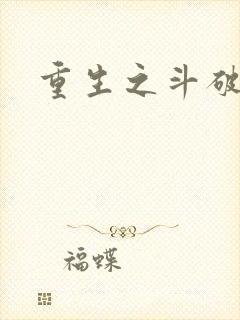 重生之斗破
福蝶